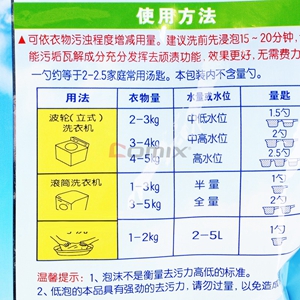 使用方法
可依衣物污浊程度增减用量。建议洗前先浸泡15~20分钟，
能污垢瓦解成分充分发挥去顽渍功能，效果更好，无需费力
一勺约等于2-2.5家庭常用汤匙。本包装内不含量勺。
用法 衣物量 水量或水位 量匙
波轮(立式)洗衣机 2-3kg 中低水位 1.5勺
3-4kg 中高水位 2勺
4-5kg 高水位 2.5勺
滚筒洗衣机 1-3kg 半量 1勺
3-5kg 全量 2勺
1-2kg 2-5L
温馨提示：1、泡沫不是衡量去污力高低的标准。
2、低泡的本品具有强劲的去污力，请勿过量，以免
Comix